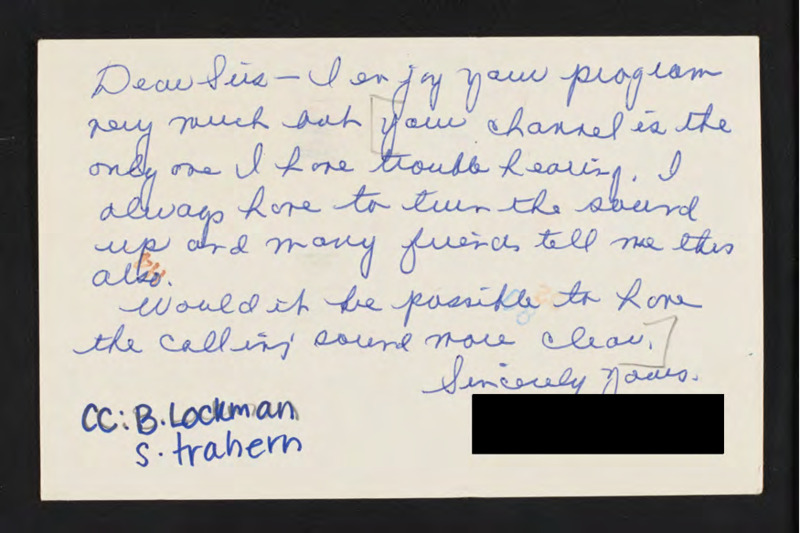 Dear Sirs — I enjoy your program
very much but your channel is the
only one I have trouble hearing. I
always have to turn the sound
up and many friends tell me this
also.
Would it be possible to have
the calling sound more clear.
Sincerely Yours.
CC: B. Lockman
S. trahern